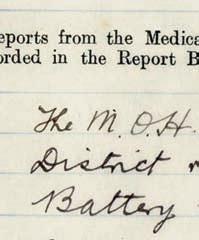 eports from the Medica
orded in the Report B
The M.O.H.
District
Battery